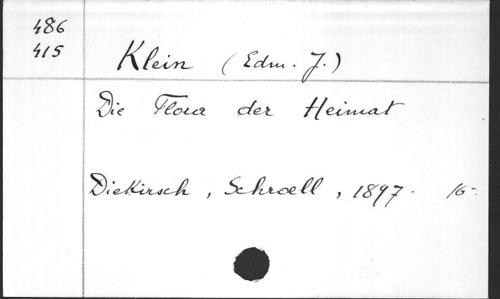 486
415
Klein (Edm. J.)
Die Flora der Heimat
Diekirsch, Schroell, 1897. 16-